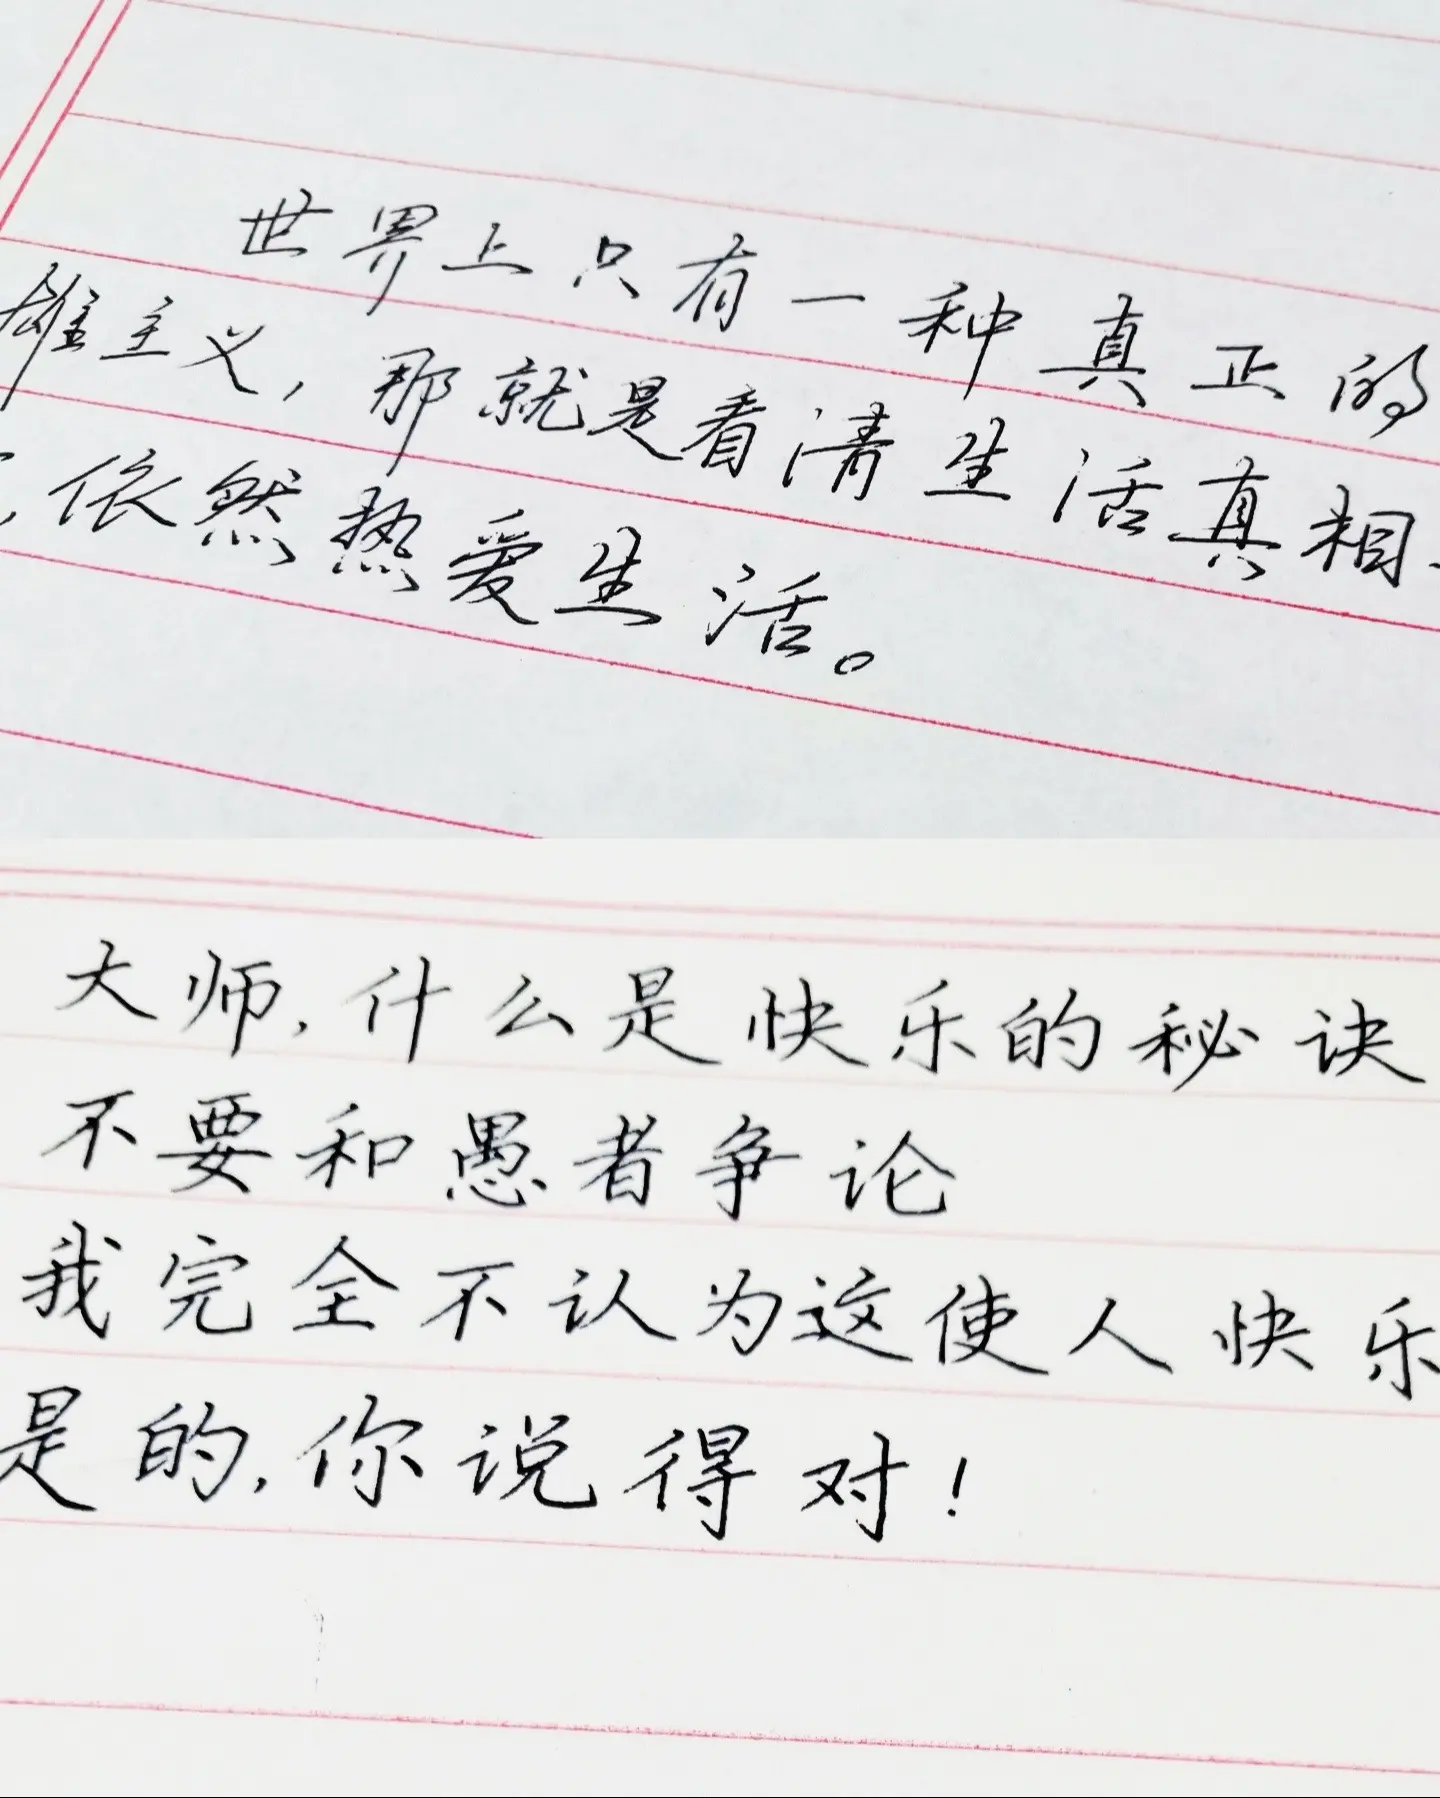 世界上只有一种真正的
雄主义，那就是看清生活真相
，依然热爱生活。
大师，什么是快乐的秘诀
不要和愚者争论
我完全不认为这使人快乐
是的，你说得对！